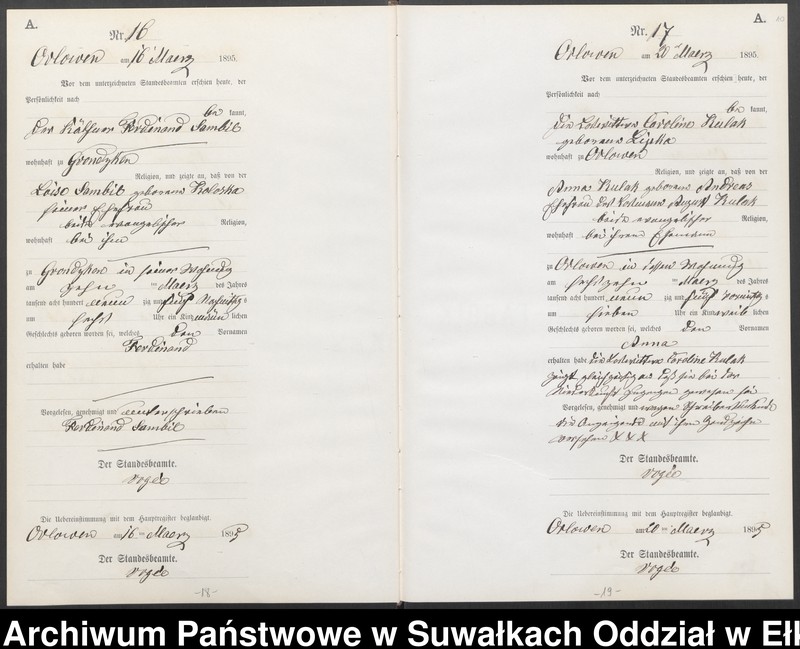 A.
Nr. 16
Orlowen am 16 ten Maerz 1895.
Vor dem unterzeichneten Standesbeamten erschien heute, der
Persönlichkeit nach
be kannt,
Der Käthner Ferdinand Sambil
wohnhaft zu Grondzken
Religion, und zeigte an, daß von der
Loise Sambil geborene Koloska
seiner Ehefrau
beide evangelischer Religion,
wohnhaft bei ihm
zu Grondzken in seiner Wohnung
am zehn ten Maerz des Jahres
tausend acht hundert neun zig und fünf Nachmittags
um sechs Uhr ein Kind männ lichen
Geschlechts geboren worden sei, welches den Vornamen
Ferdinand
erhalten habe
Vorgelesen, genehmigt und unterschrieben
Ferdinand Sambil
Der Standesbeamte.
Vogel
Die Uebereinstimmung mit dem Hauptregister beglaubigt.
Orlowen am 16 ten Maerz 1895
Der Standesbeamte.
Vogel
-18-
A.
Nr. 17
Orlowen am 20 ten Maerz 1895.
Vor dem unterzeichneten Standesbeamten erschien heute, der
Persönlichkeit nach
be kannt,
Die Caroline Kulak
geborene Lipka
wohnhaft zu Orlowen
Religion, und zeigte an, daß von der
Anna Kulak geborene Andreas
Ehefrau des August Kulak
beide evangelischer Religion,
wohnhaft bei ihrem Ehemann
zu Orlowen in dessen Wohnung
am sechszehn ten Maerz des Jahres
tausend acht hundert neun zig und fünf Vormittags
um sieben Uhr ein Kind weib lichen
Geschlechts geboren worden sei, welches den Vornamen
Anna
erhalten habe Die Caroline Kulak
zeigt gleichzeitig an daß sie bei der
Niederkunft zugegen gewesen sei
Vorgelesen, genehmigt und wegen Schreibensunkunde
der Anzeigende mit ihrem Handzeichen
versehen X X X
Der Standesbeamte.
Vogel
Die Uebereinstimmung mit dem Hauptregister beglaubigt.
Orlowen am 20 ten Maerz 1895
Der Standesbeamte.
Vogel
-19-
Archiwum Państwowe w Suwałkach Oddział w Ełk